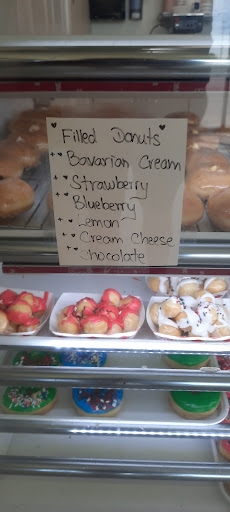 Filled Donuts
Bavarian Cream
Strawberry
Blueberry
Lemon
Cream Cheese
Chocolate